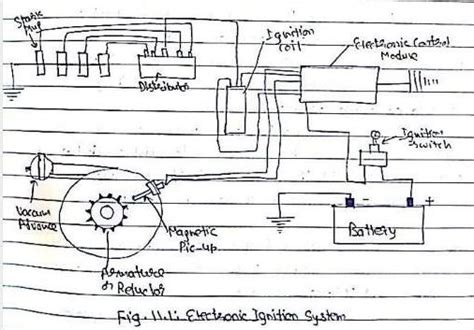 Ignition
coil
Electronic Control
Module
Distributor
Ignition
switch
Vacuum
Advance
Magnetic
Pic-up
- +
Battery
Armature
or Reluctor
Fig. 11.1: Electronic Ignition System